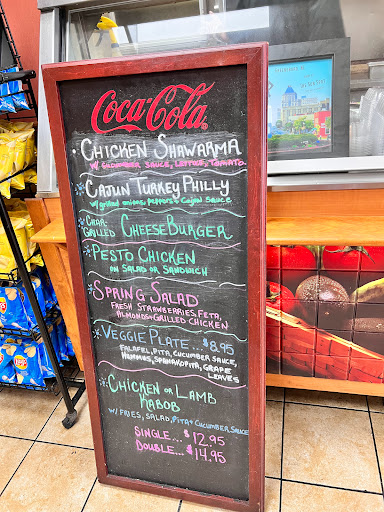 Coca-Cola
CHICKEN SHAWARMA
W/ CUCUMBER SAUCE, LETTUCE, TOMATO
CAJUN TURKEY PHILLY
w/grilled onions, peppers & Cajun Sauce
CHAR
GRILLED CHEESEBURGER
PESTO CHICKEN
ON SALAD OR SANDWICH
SPRING SALAD
FRESH STRAWBERRIES, FETA,
ALMONDS & GRILLED CHICKEN
VEGGIE PLATE... $8.95
FALAFEL, PITA, CUCUMBER SAUCE,
HUMMUS, SPANAKOPITA, GRAPE
LEAVES
CHICKEN OR LAMB
KABOB
W/ FRIES, SALAD, PITA & CUCUMBER SAUCE
SINGLE... $12.95
DOUBLE... $14.95